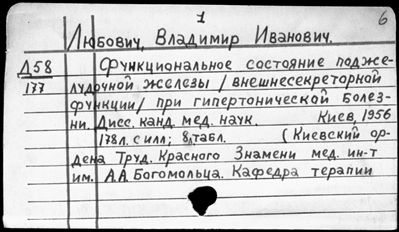 1 6
Любович, Владимир Иванович.
Д58 Функциональное состояние подже-
177 лудочной железы /внешнесекреторной
функции/ при гипертонической болез-
ни. Дисс. канд. мед. наук. Киев, 1956
178л. с илл; 8 табл. (Киевский ор-
дена Труд. Красного Знамени мед. ин-т
им. А.А. Богомольца. Кафедра терапии